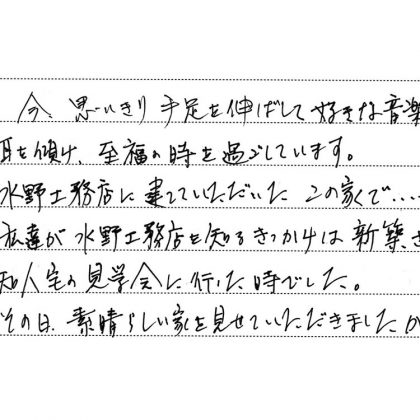 今、思いきり手足を伸ばして好きな音楽
耳を傾け、至福の時を過ごしています。
水野工務店に建てていただいたこの家で‥‥
私達が水野工務店を知るきっかけは新築さ
知人宅の見学会に行った時でした。
その日、素晴らしい家を見せていただきましたが